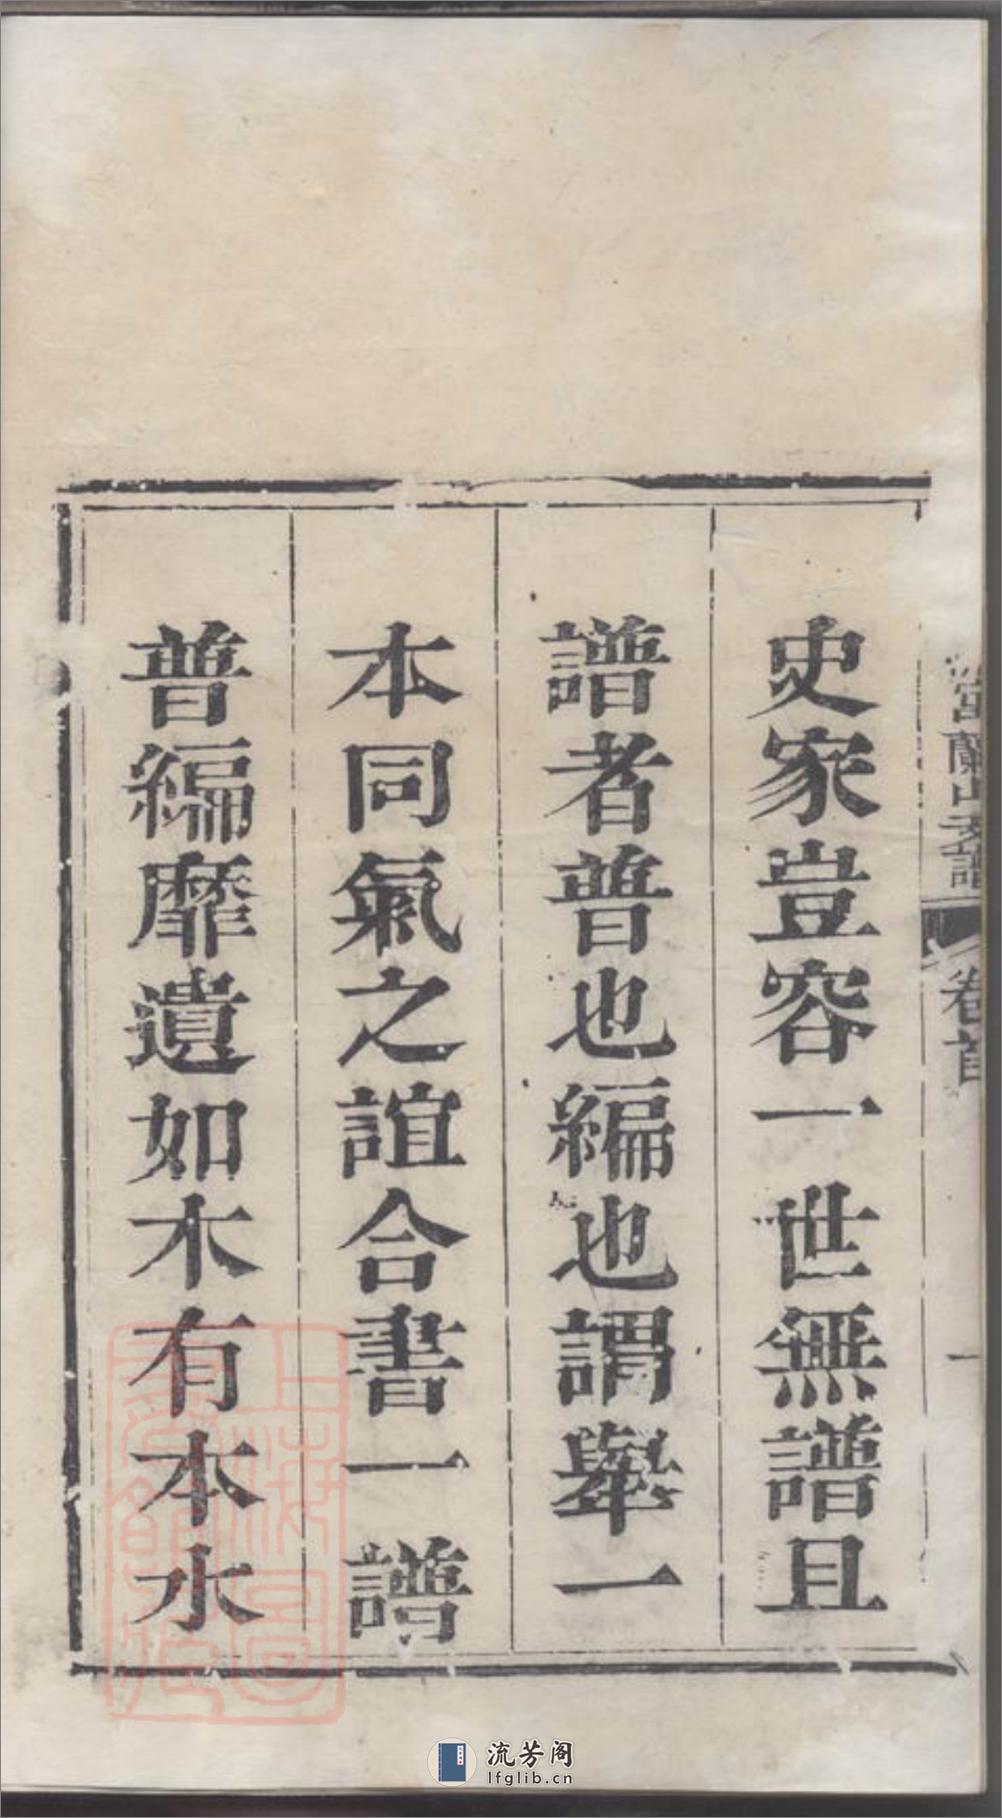 史家豈容一世無譜且
譜者普也編也謂舉一
本同氣之誼合書一譜
普編靡遺如木有本水
蘭山支譜
卷首
一
上海圖書館藏
流芳阁
lfglib.cn